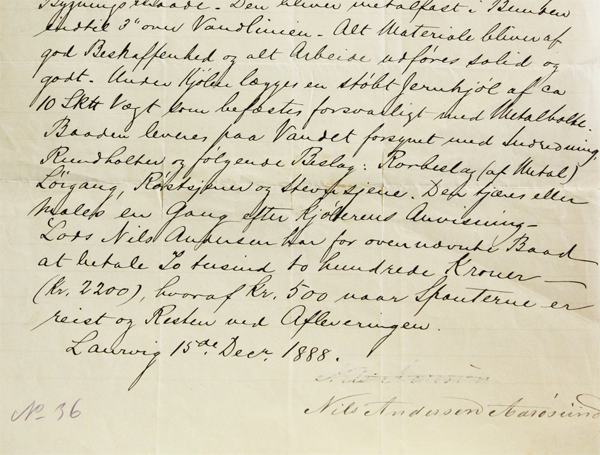 Bygningsmaade. Den bliver metalfast i Bunden
indtil 3" over Vandlinien. Alt Materiale bliver af
god Beskaffenhed og alt Arbeide udføres solid og
godt. Under Kjølen lægges en støbt Jernkjøl af ca
10 Sk℔ Vægt som befæstes forsvarligt med Metalbolte.
Baaden leveres paa Vandet forsynet med Indredning,
Rundholter og følgende Beslag: Rorbeslag (af Metal)
Løigang, Røstjerner og Stevnsjene. Den tjæres eller
males en Gang efter Kjøberens Anvisning –
Lods Nils Andersen har for ovennævnte Baad
at betale To tusind to hundrede Kroner –
(Kr. 2200), hvoraf Kr. 500 naar Spanterne er
reist og Resten ved Afleveringen.
Laurvig 15de Decr. 1888.
Nils Andersen Aarøsund
No 36